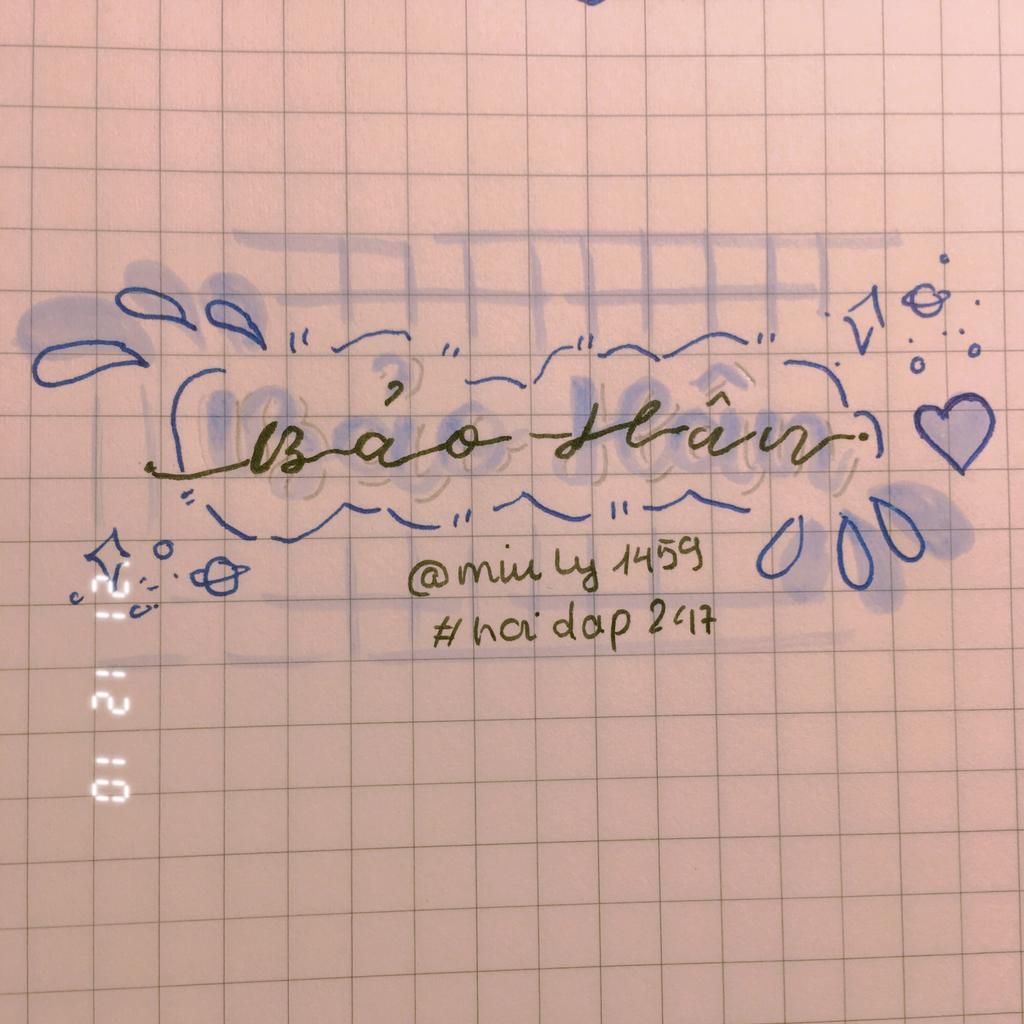 Bảo Hân
@miu ly 1459
#hoi dap 247
01 12 21